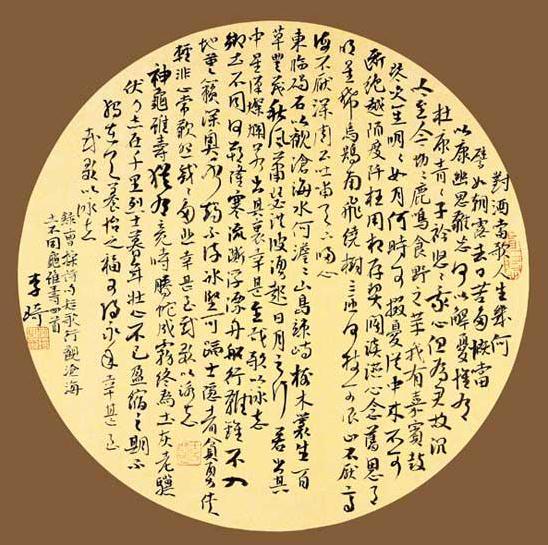 對酒當歌人生幾何
譬如朝露去日苦多慨當
以康幽思難忘何以解憂惟有
杜康青青子衿悠悠我心但為君故沉
吟至今呦呦鹿鳴食野之苹我有嘉賓鼓
瑟吹笙明明如月何時可掇憂從中來不可
斷絕越陌度阡枉用相存契闊談讌心念舊恩月
明星稀烏鵲南飛繞樹三匝何枝可依山不厭高
海不厭深周公吐哺天下歸心
東臨碣石以觀滄海水何澹澹山島竦峙樹木叢生百
草豐茂秋風蕭瑟洪波湧起日月之行若出其
中星漢燦爛若出其裏幸甚至哉歌以詠志
鄉土不同河朔隆寒流澌浮漂舟船行難錐不入
地蘴藾深奧水竭不流冰堅可蹈士隱者貧勇俠
輕非心常歎怨戚戚多悲幸甚至哉歌以詠志
神龜雖壽猶有竟時騰蛇成霧終為土灰老驥
伏櫪志在千里烈士暮年壯心不已盈縮之期不
獨在天養怡之福可得永年幸甚至
哉歌以詠志
錄曹操詩短歌行觀滄海
土不同龜雖壽四首
李琦